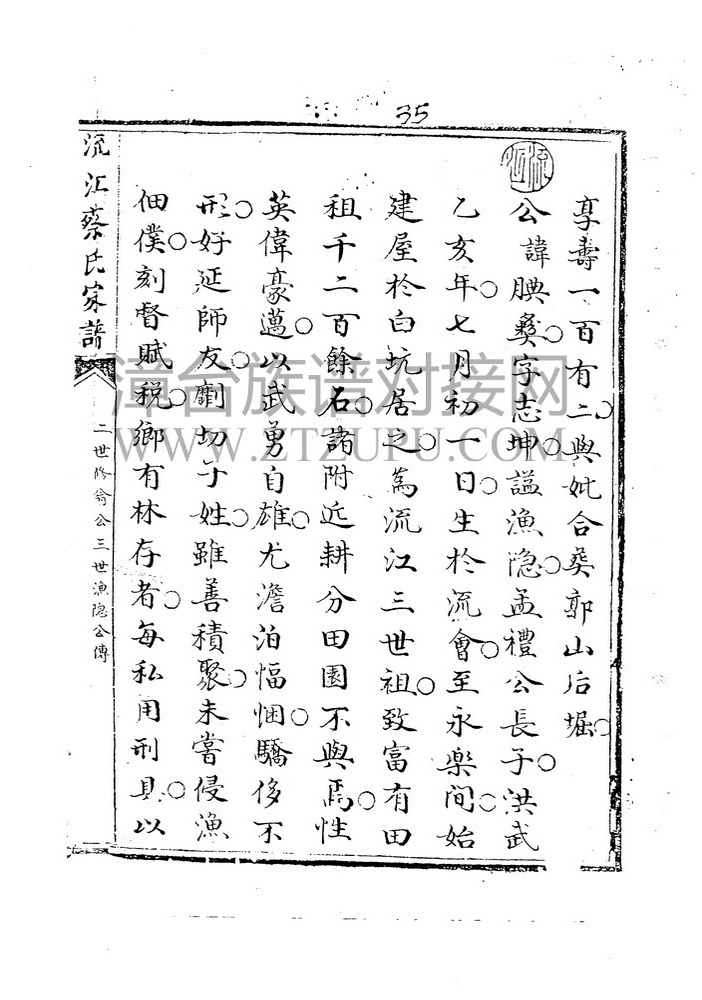 35
享壽一百有二與妣合葬郭山后堀
公諱腆彝字志坤謚漁隐孟禮公長子洪武
乙亥年七月初一日生於流會至永楽間始
建屋於白坑居之為流江三世祖致富有田
租千二百餘石諸附近耕分田園不與焉性
英偉豪邁以武勇自雄尤澹泊愊悃驕侈不
形好延師友劘切子姓雖善積聚未嘗侵漁
佃僕刻督賦税鄉有林存者每私用刑具以
流江蔡氏家譜
二世修齋公三世漁隐公傳
漳台族谱对接网
WWW.ZTZUPU.COM